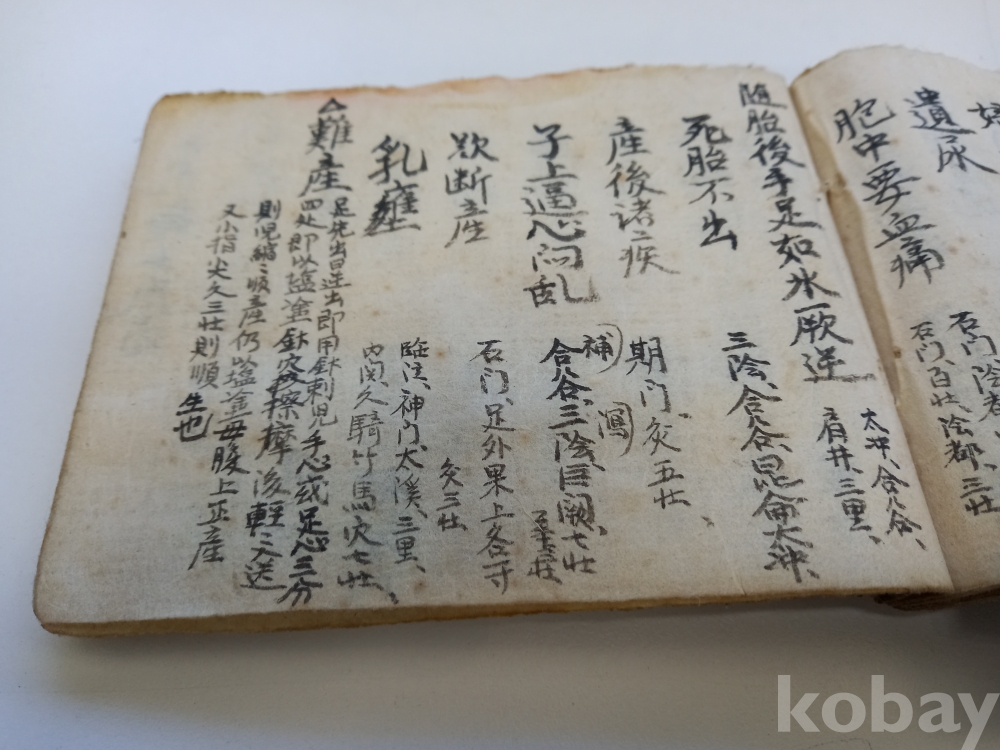 遺尿
胞中要血痛
石门、陰都、
石门、百壮、陰都、三壮
随胎後手足如氷一厥逆
太冲、合谷、
肩井、三里、
死胎不出
三陰、合谷、昆侖、太冲、
産後諸疾
期门、灸五壮、
子上逼心闷乱
補 瀉
合谷、三陰、巨闕、七壮
欲断産
石门、足外果上各寸
灸三壮
乳癰
臨泣、神门、太溪、三里、
内関久騎竹馬穴七壮、
△難産
足先出曰逆出即用針刺児手心或足心三分
四处即以塩塗針穴擦摩後軽入送
則児縮順産仍以塩塗母腹上正産
又小指尖久三壮則順
生也
kobay